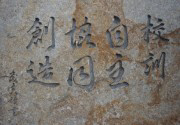 校訓
自主
協同
創造